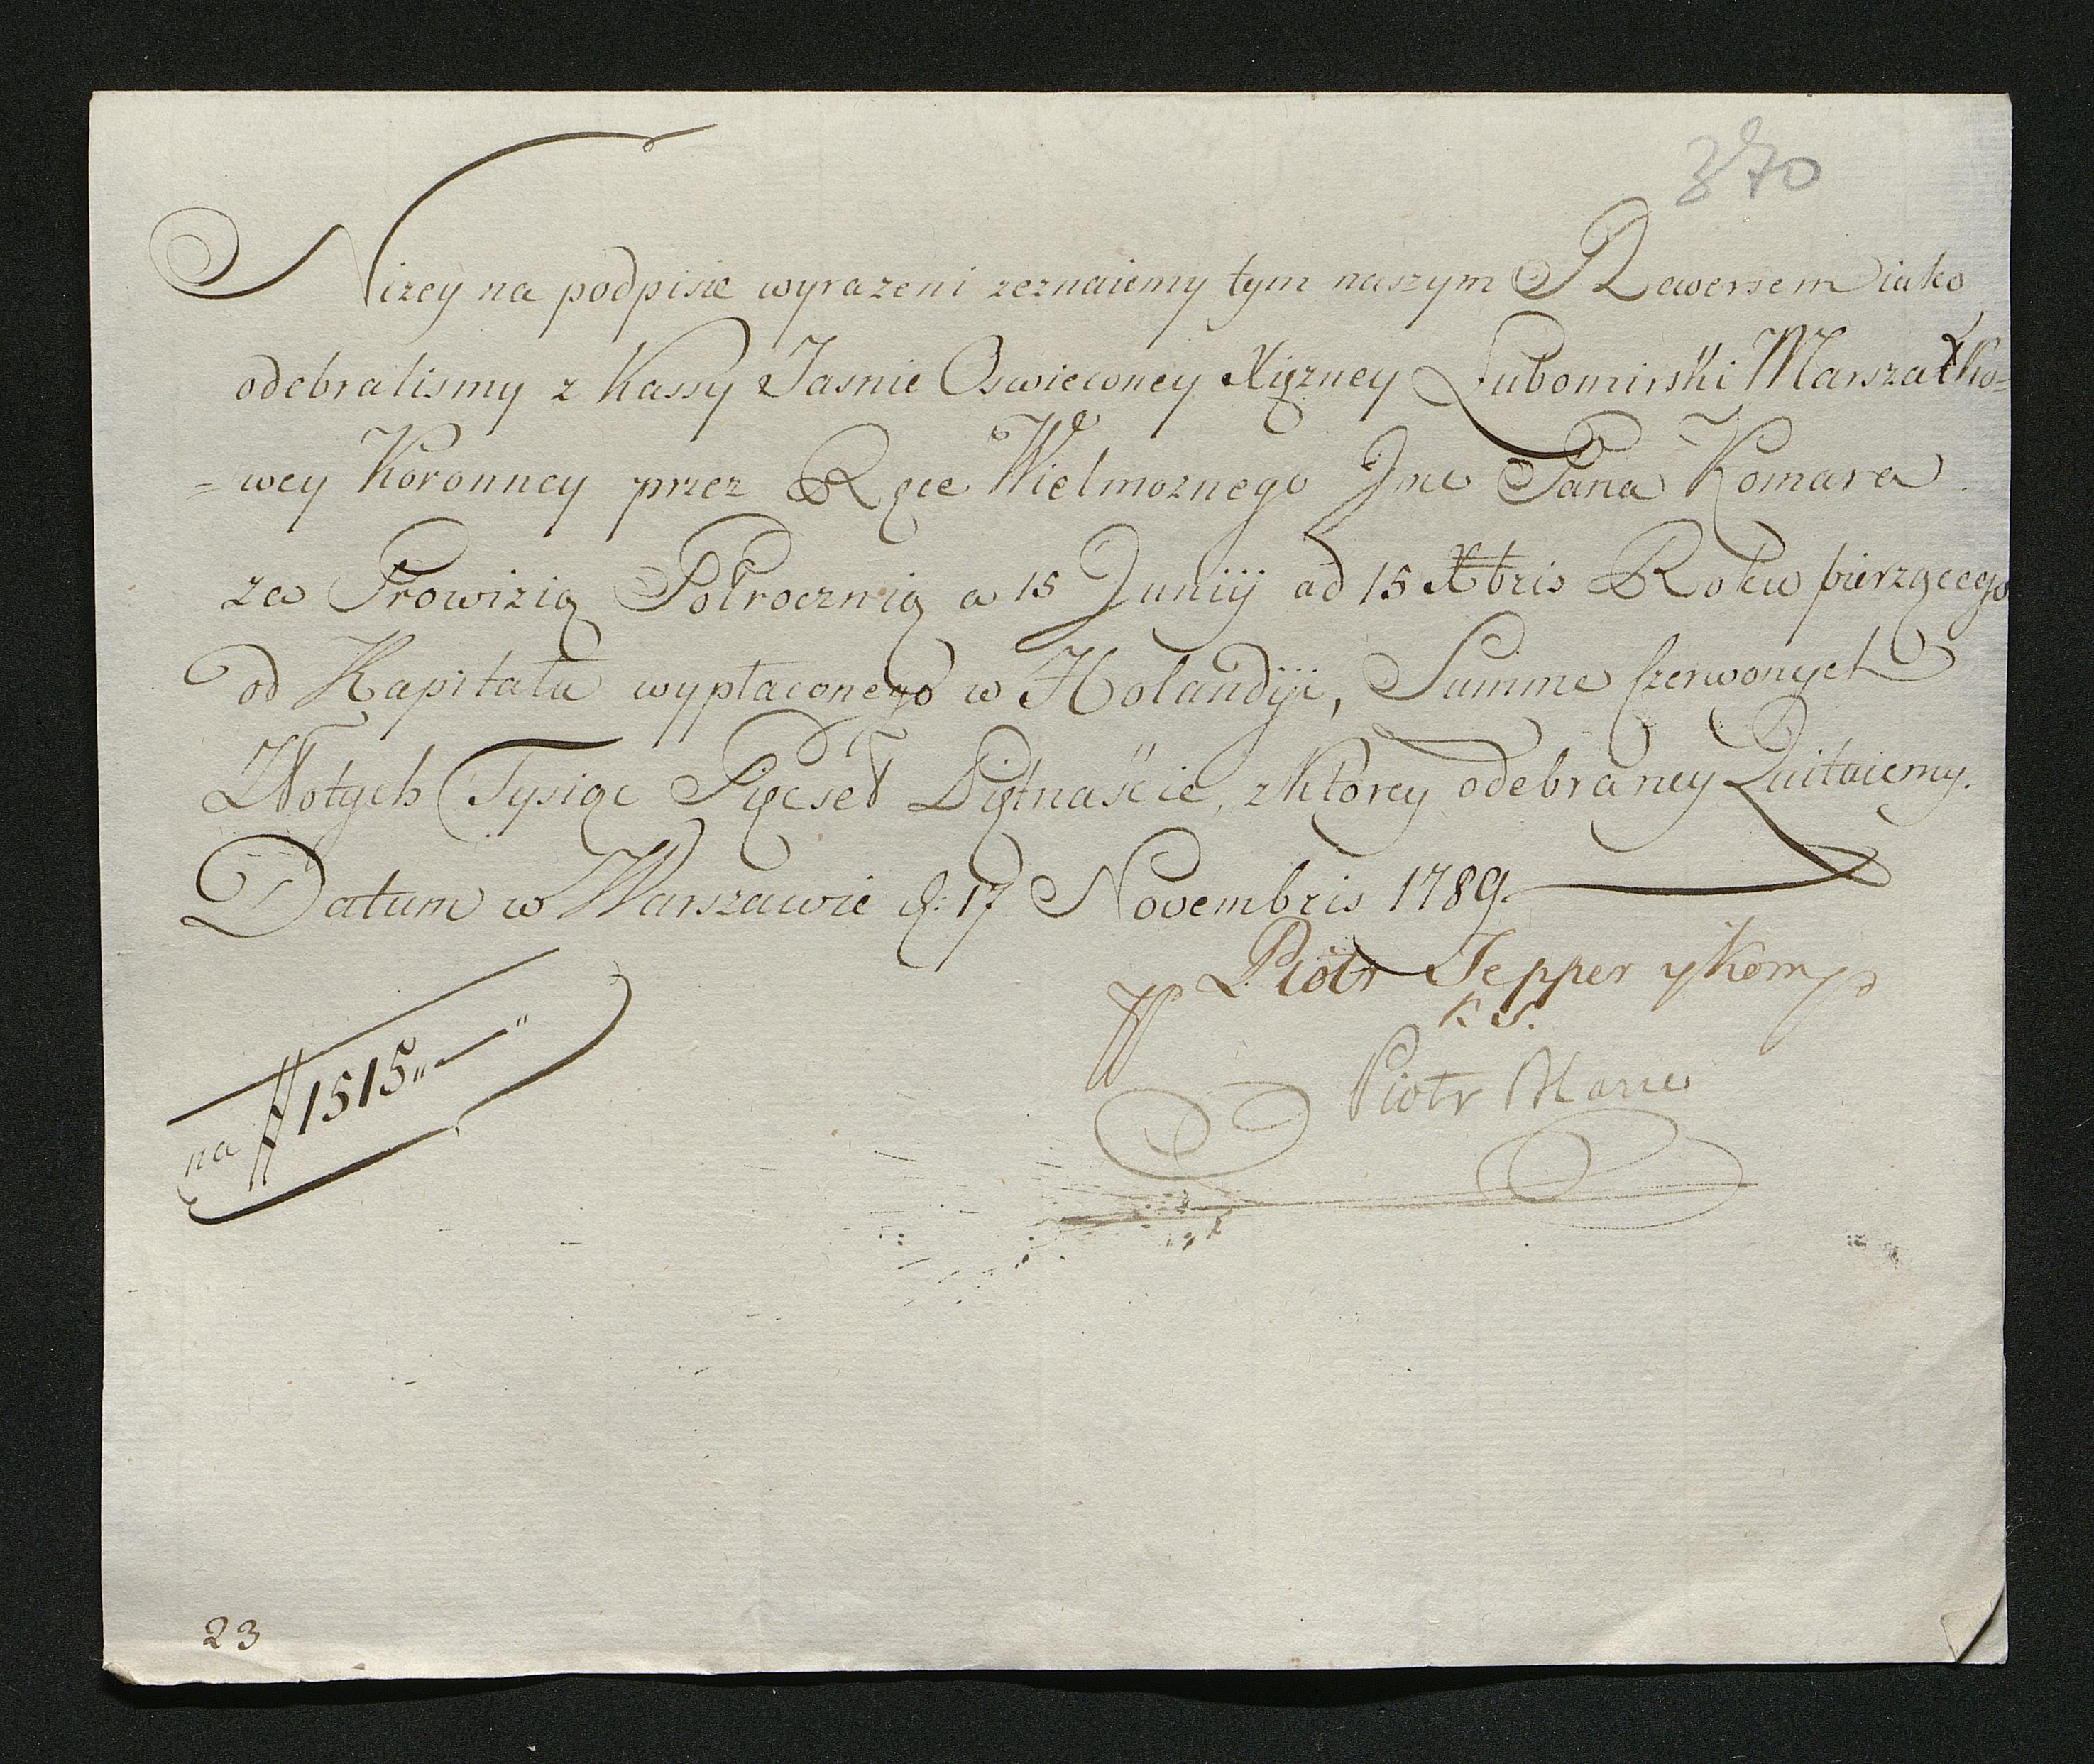 370
Nizey na podpisie wyrazeni zeznaiemy tym naszym Rewersem iako
odebralismy z Kassy Jasnie Oswieconey Xięzney Lubomirski Marszałko=
=wey Koronney przez Ręce Wielmoznego Jmc Pana Komara
za Prowizią Połrocznią a 15 Junij ad 15 Xbris Roku bierzącego
od Kapitału wypłaconego w Holandyi, Summe Czerwonych
Złotych Tysiąc Pięcset Piętnaście, z ktorey odebraney Quitaiemy.
Datum w Warszawie d: 17 Novembris 1789.
Piotr Tepper y Komp
K. S.
Piotr
na # 1515,,—"
23